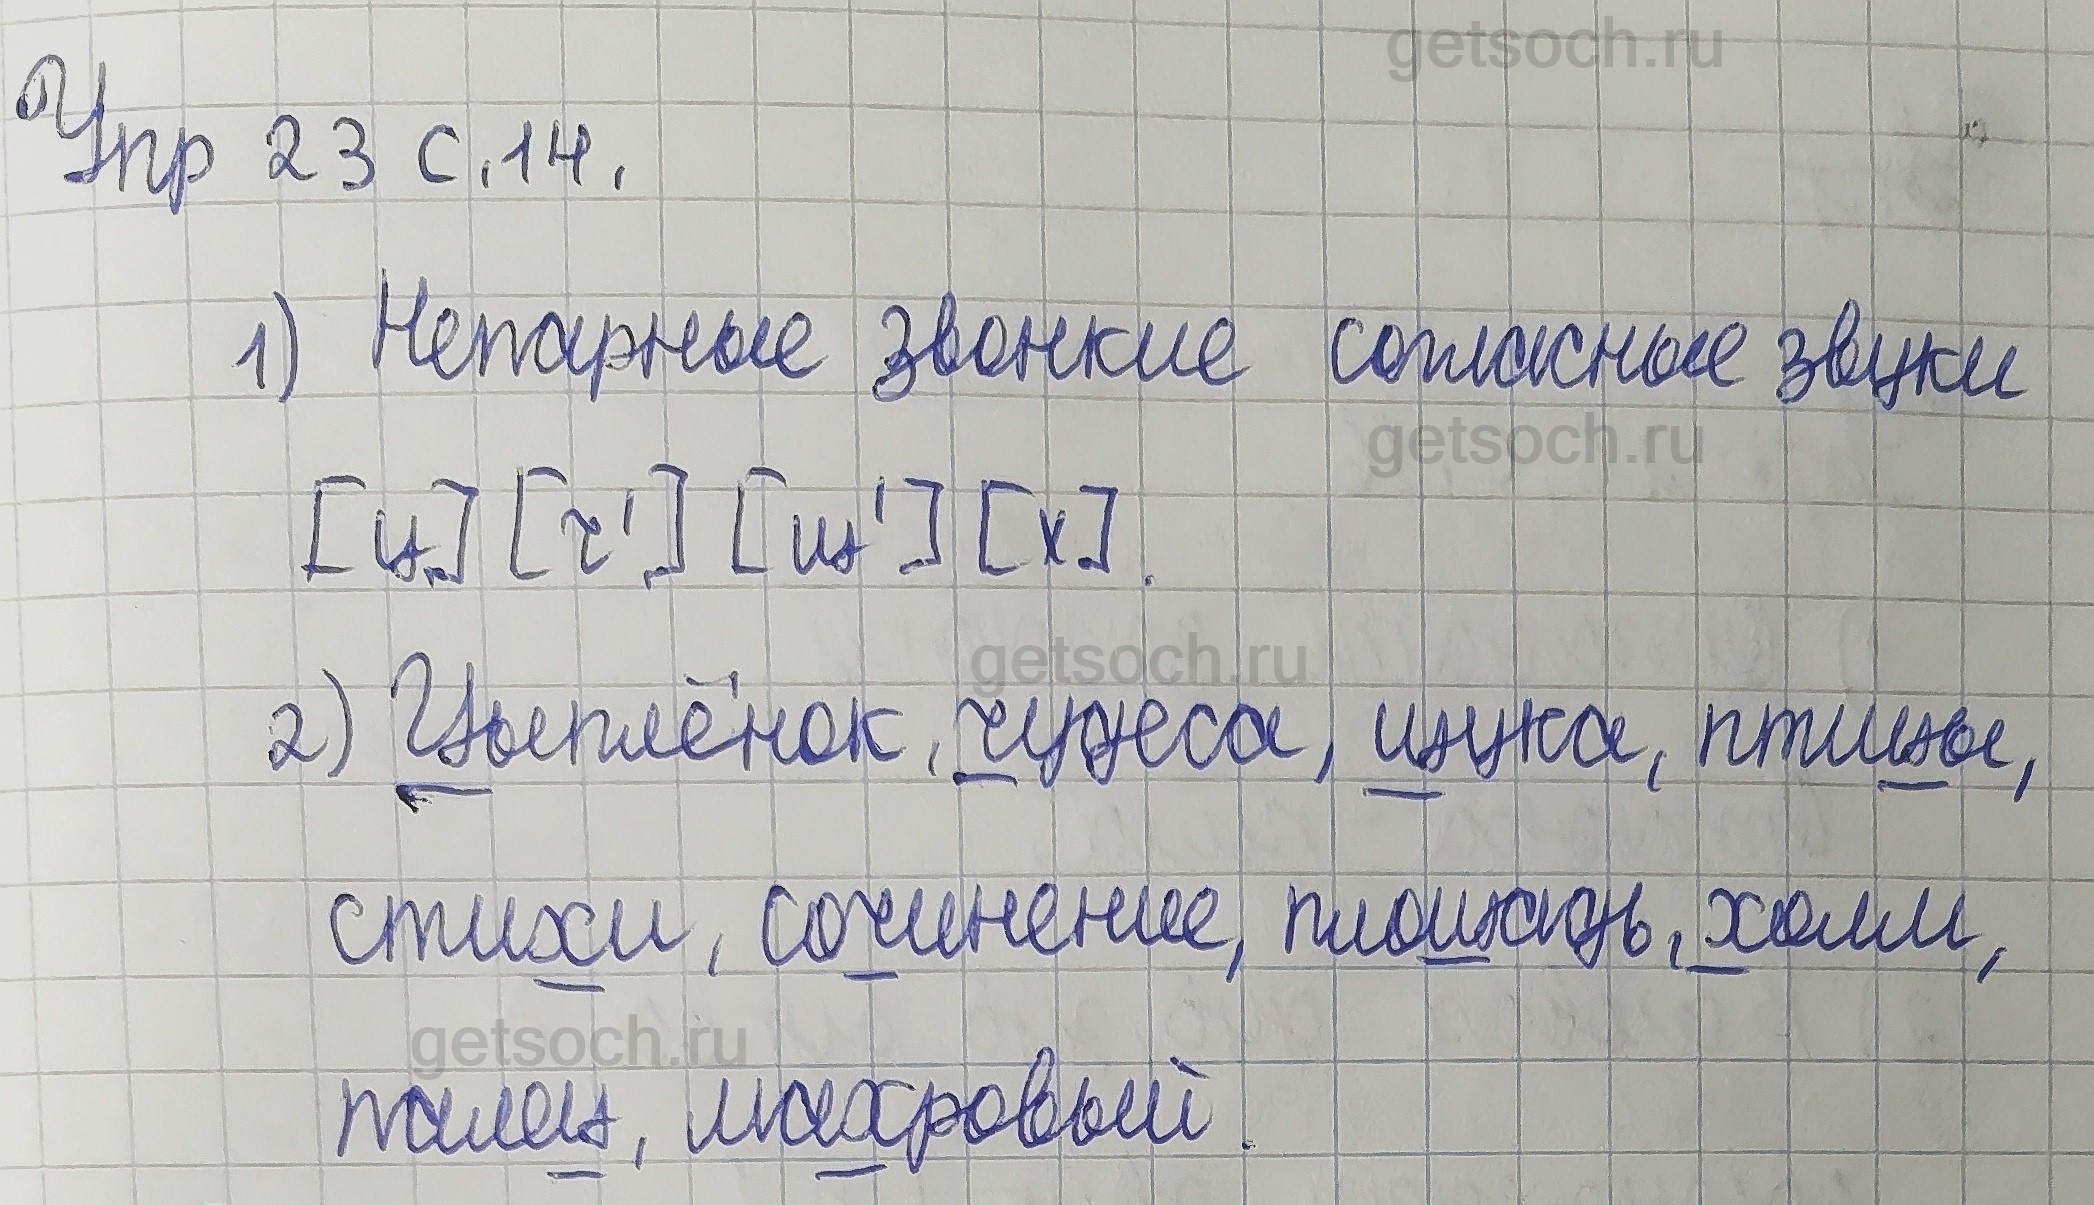 getsoch.ru
Упр 23 с. 14.
1) Непарные звонкие согласные звуки
getsoch.ru
[ц] [ч'] [щ'] [х].
getsoch.ru
2) Цыплёнок, чудеса, щука, птицы,
стихи, сочинение, площадь, холм,
getsoch.ru
палец, махровый.